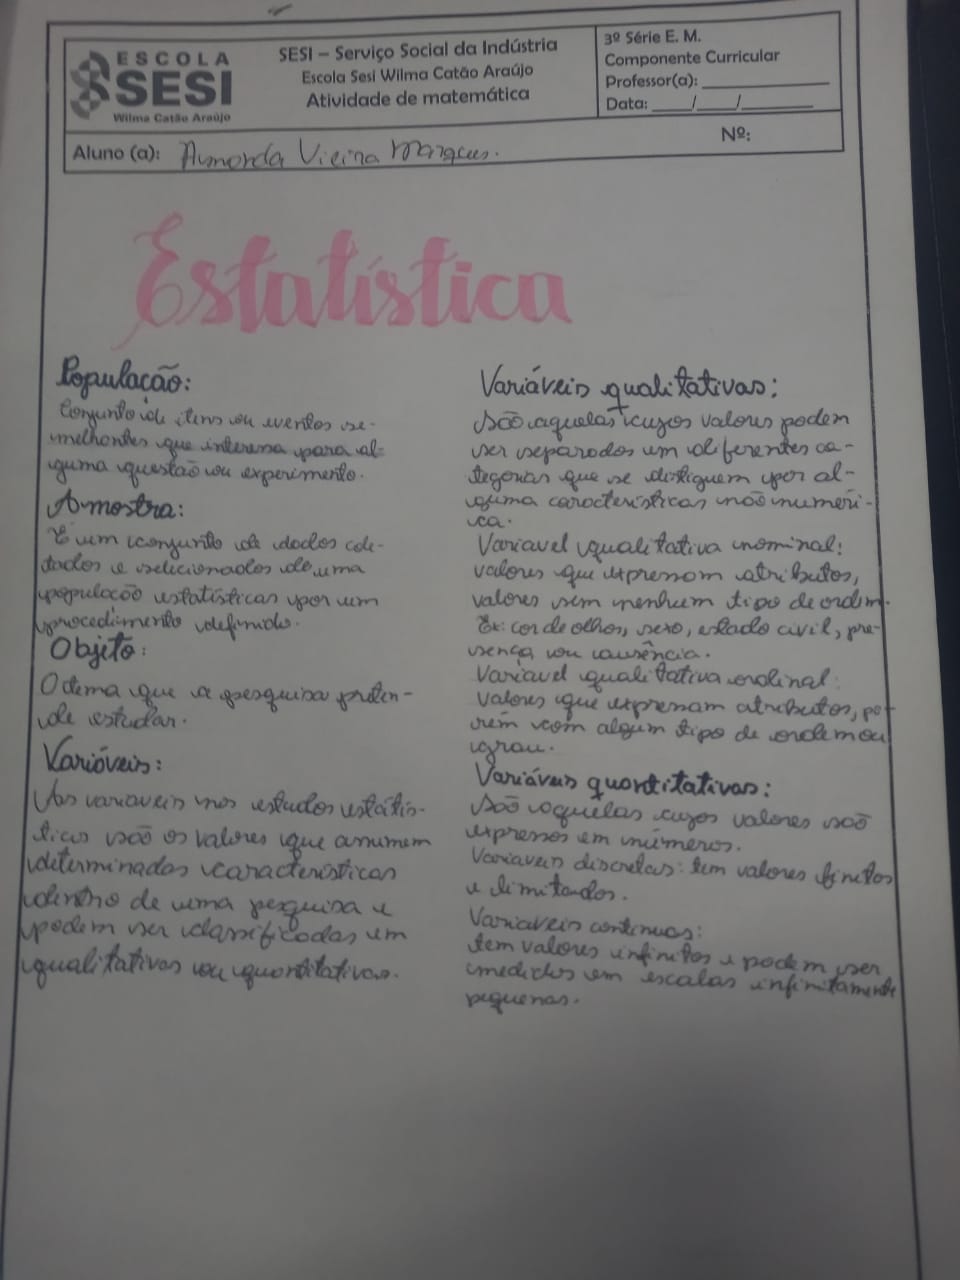 ESCOLA
SESI
Wilma Catão Araújo
SESI – Serviço Social da Indústria
Escola Sesi Wilma Catão Araújo
Atividade de matemática
3º Série E. M.
Componente Curricular
Professor(a): ____________
Data: ____/____/________
Aluno (a): Amanda Vieira Marques.
Nº:
Estatística
População:
Conjunto de itens ou eventos se-
melhantes que interessa para al-
guma questão ou experimento.
Amostra:
É um conjunto de dados cole-
tados e selecionados de uma
população estatísticas por um
procedimento definido.
Objeto:
O tema que a pesquisa preten-
de estudar.
Variáveis:
As variaveis nos estudos estatís-
ticas são os valores que assumem
determinadas características
dentro de uma pesquisa e
podem ser classificadas em
qualitativas ou quantitativas.
Variáveis qualitativas:
São aquelas cujos valores podem
ser separados em diferentes ca-
tegorias que se distiguem por al-
guma características não numéri-
ca.
Variavel qualitativa nominal:
valores que expressam atributos,
valores sem nenhum tipo de ordem.
Ex: cor de olhos, sexo, estado civil, pre-
sença ou ausência.
Variavel qualitativa ordinal:
valores que expressam atributos, po-
rém com algum tipo de ordem ou
grau.
Variáveis quantitativas:
São aquelas cujos valores são
expressos em números.
Variaveis discretas: tem valores finitos
e limitados.
Variaveis continuas:
tem valores infinitos e podem ser
medidos em escalas infinitamente
pequenas.